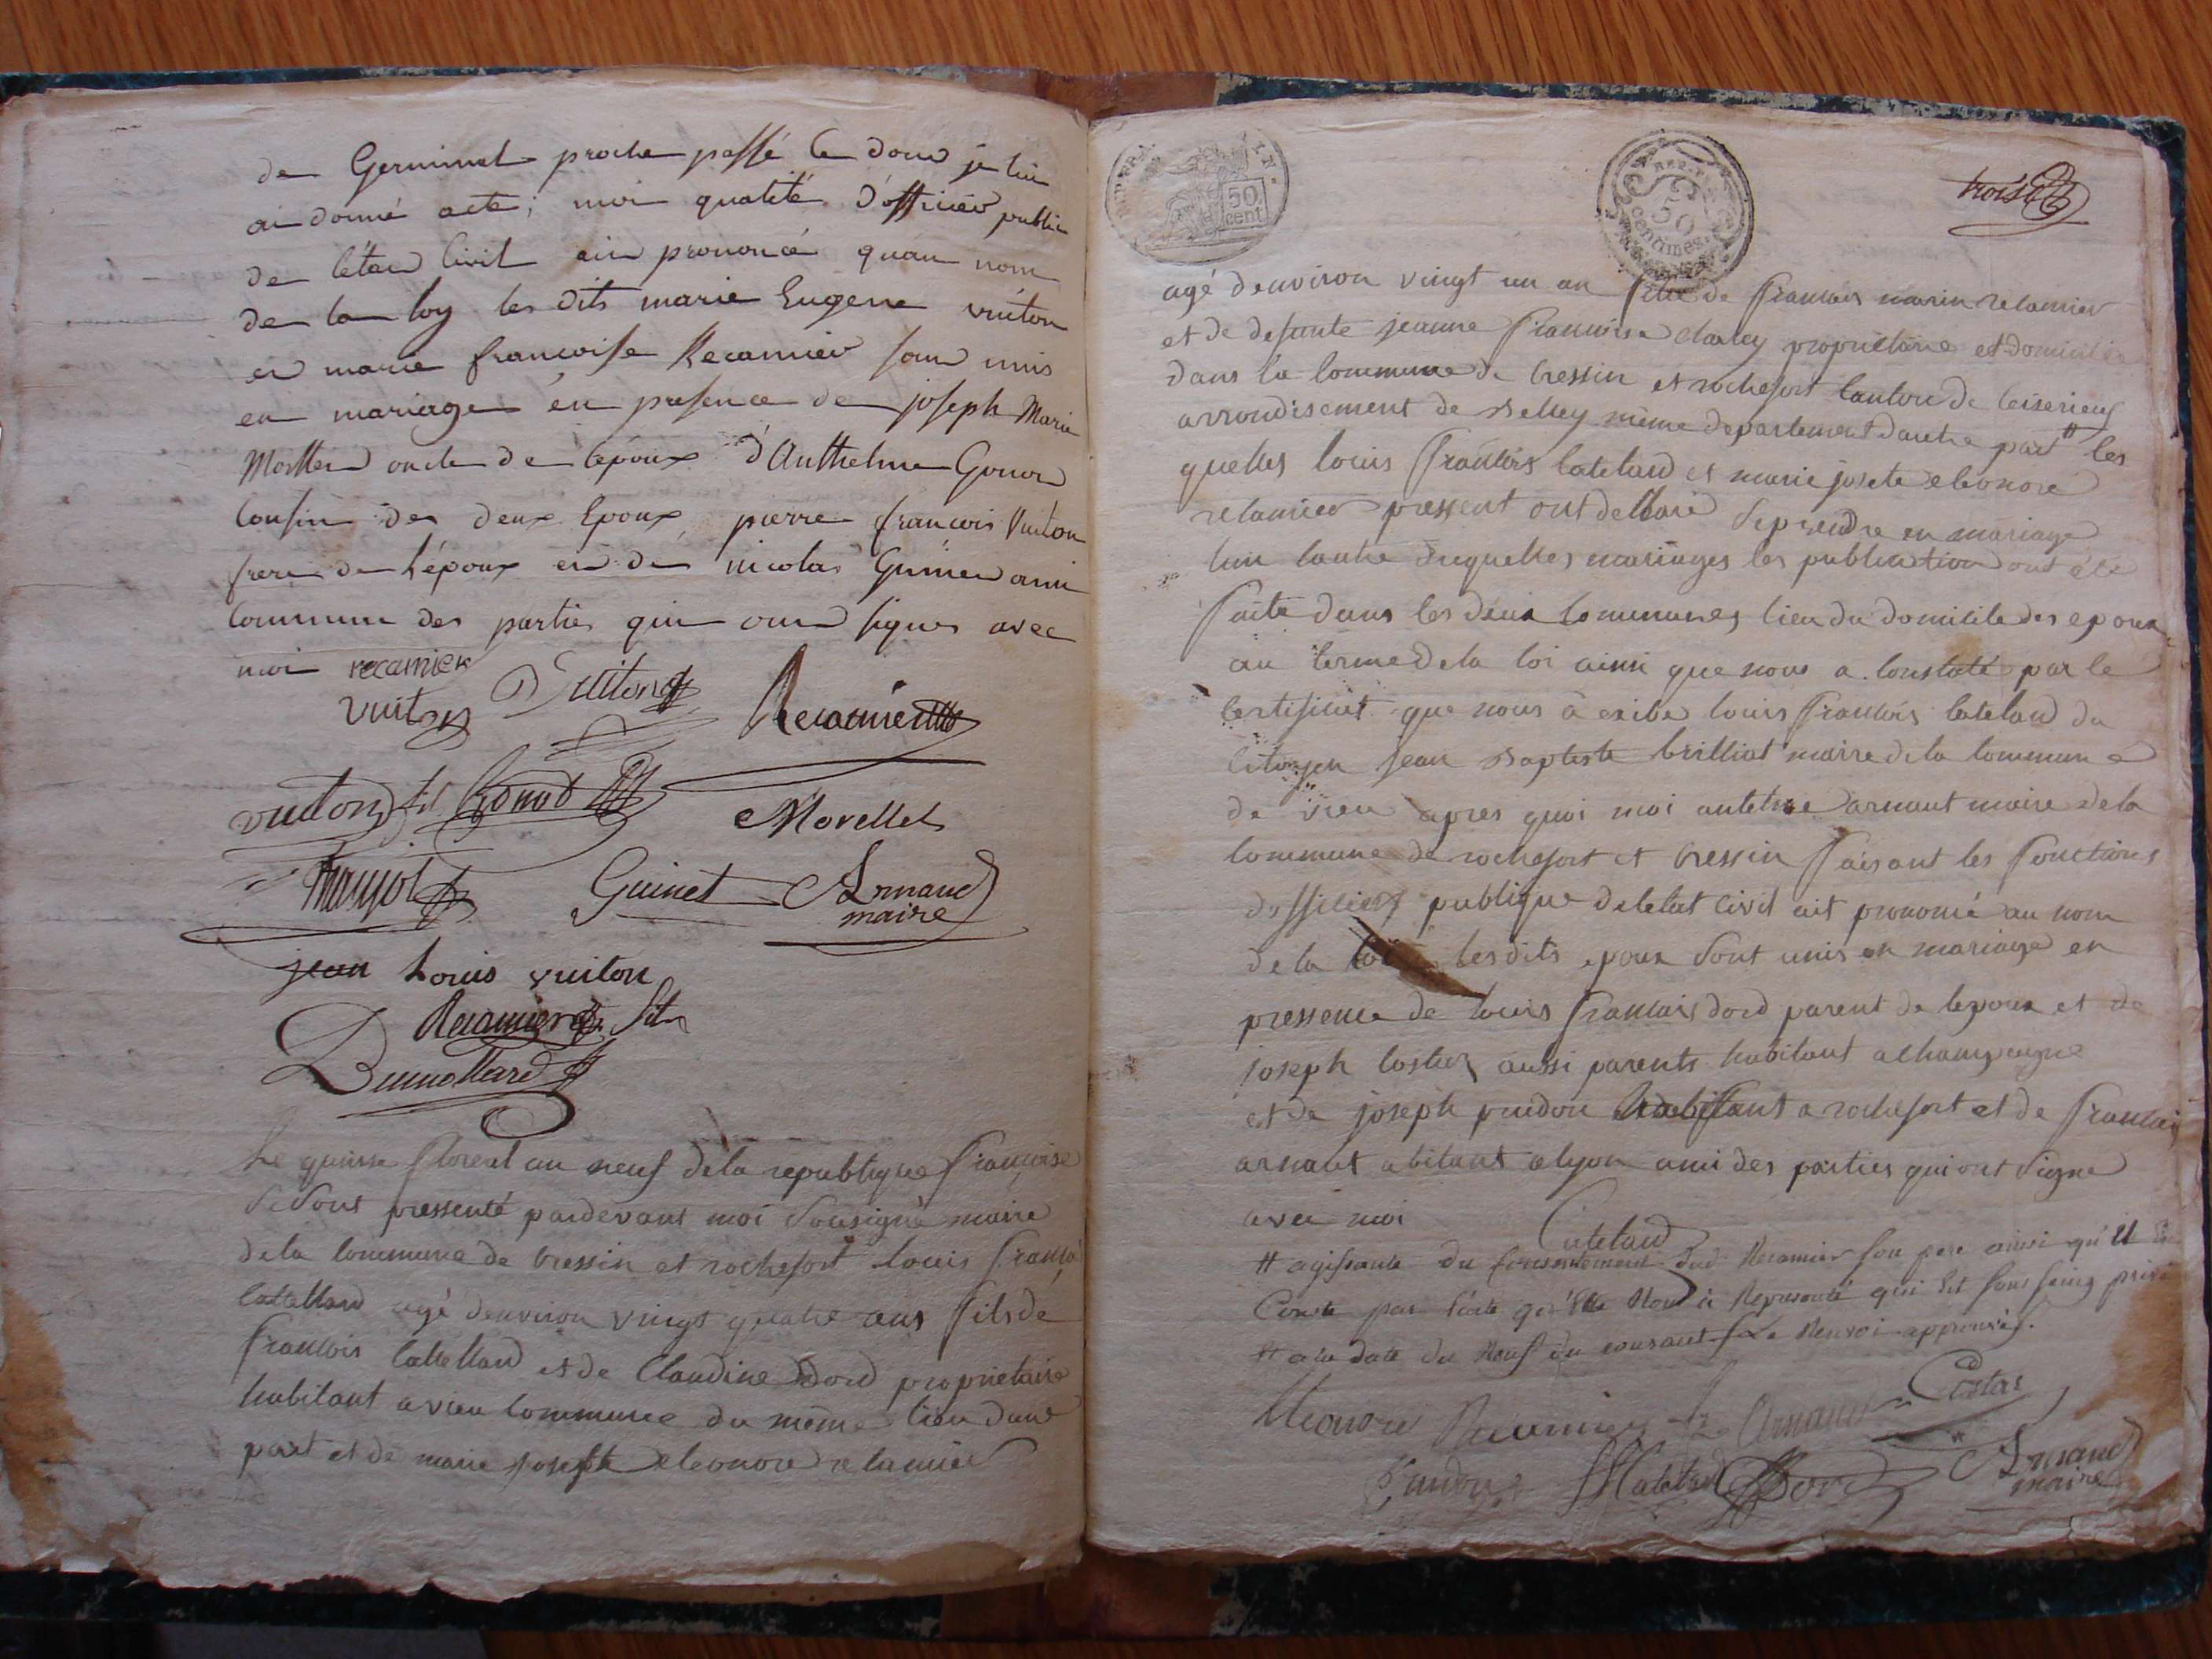 de Germinal proche passé le dont je lui
ai donné acte; moi qualité d'officier public
de l'état Civil ai prononcé quau nom
de la loy les dits marie Eugene vuiton
et marie francoise Recamier sont unis
en mariage en presence de joseph Marie
Morellet oncle de l'époux d'Anthelme Gonod
Cousin des deux Epoux pierre francois Vuiton
frere de l'époux et de nicolas Guinet ami
commun des parties qui ont signes avec
moi recamier
vuiton D Vuiton Recamier
vuiton fils Gonod Morellet
Guinet Armand
maire
jean Louis vuiton
Recamier fils
Dumollard
Le quinse floreal an neuf de la republique francoise
se sont pressenté pardevant moi sousigné maire
de la commune de cressin et rochefort louis francois
cattelland agé denviron vingt quatre ans fils de
francois cattelland et de Claudine Dord proprietaire
habitant a vieu commune du même lieu dune
part et de marie josephte eleonore recamier
50
cent.
REP. FRA.
50
centimes.
trois
agé denviron vingt un an fille de francois marin recamier
et de defunte jeanne francoise charley proprietaire et domicilié
dans la commune de cressin et rochefort canton de ceiserieu
arrondisement de Belley même departement dautre part # les
quelles louis francois cateland et marie josete eleonore
recamier pressent ont declaré se prendre en mariage
lun lautre duquelles mariages les publication ont été
faite dans les deux communes lieu du domicile des epoux
au terme de la loi ainsi que nous a constaté par le
certificat que nous à exibé louis francois cateland du
citoyen jean Baptiste brilliat maire de la commune
de vieu apres quoi moi antelme arnaut maire de la
commune de rochefort et cressin faisant les fonctions
dofficier publique deletat civil ait prononcé au nom
de la loi lesdits epoux sont unis en mariage en
pressence de louis francois dord parent de lepoux et de
joseph costaz aussi parents habitant a champagne
et de joseph prudon habitant a rochefort et de francois
arnaut abitant a lyon ami des parties qui ont signe
avec moi Cateland
# agissante du consentement dud Recamier son pere ainsi qu'il
Conste par l'acte qu'elle Nous à Representé qui est sous seing privé
# a la date du Neuf du courant le Renvoi approuvé.
Eleonore Recamier Armand Costaz
Prudon Cateland Dord Armand
maire